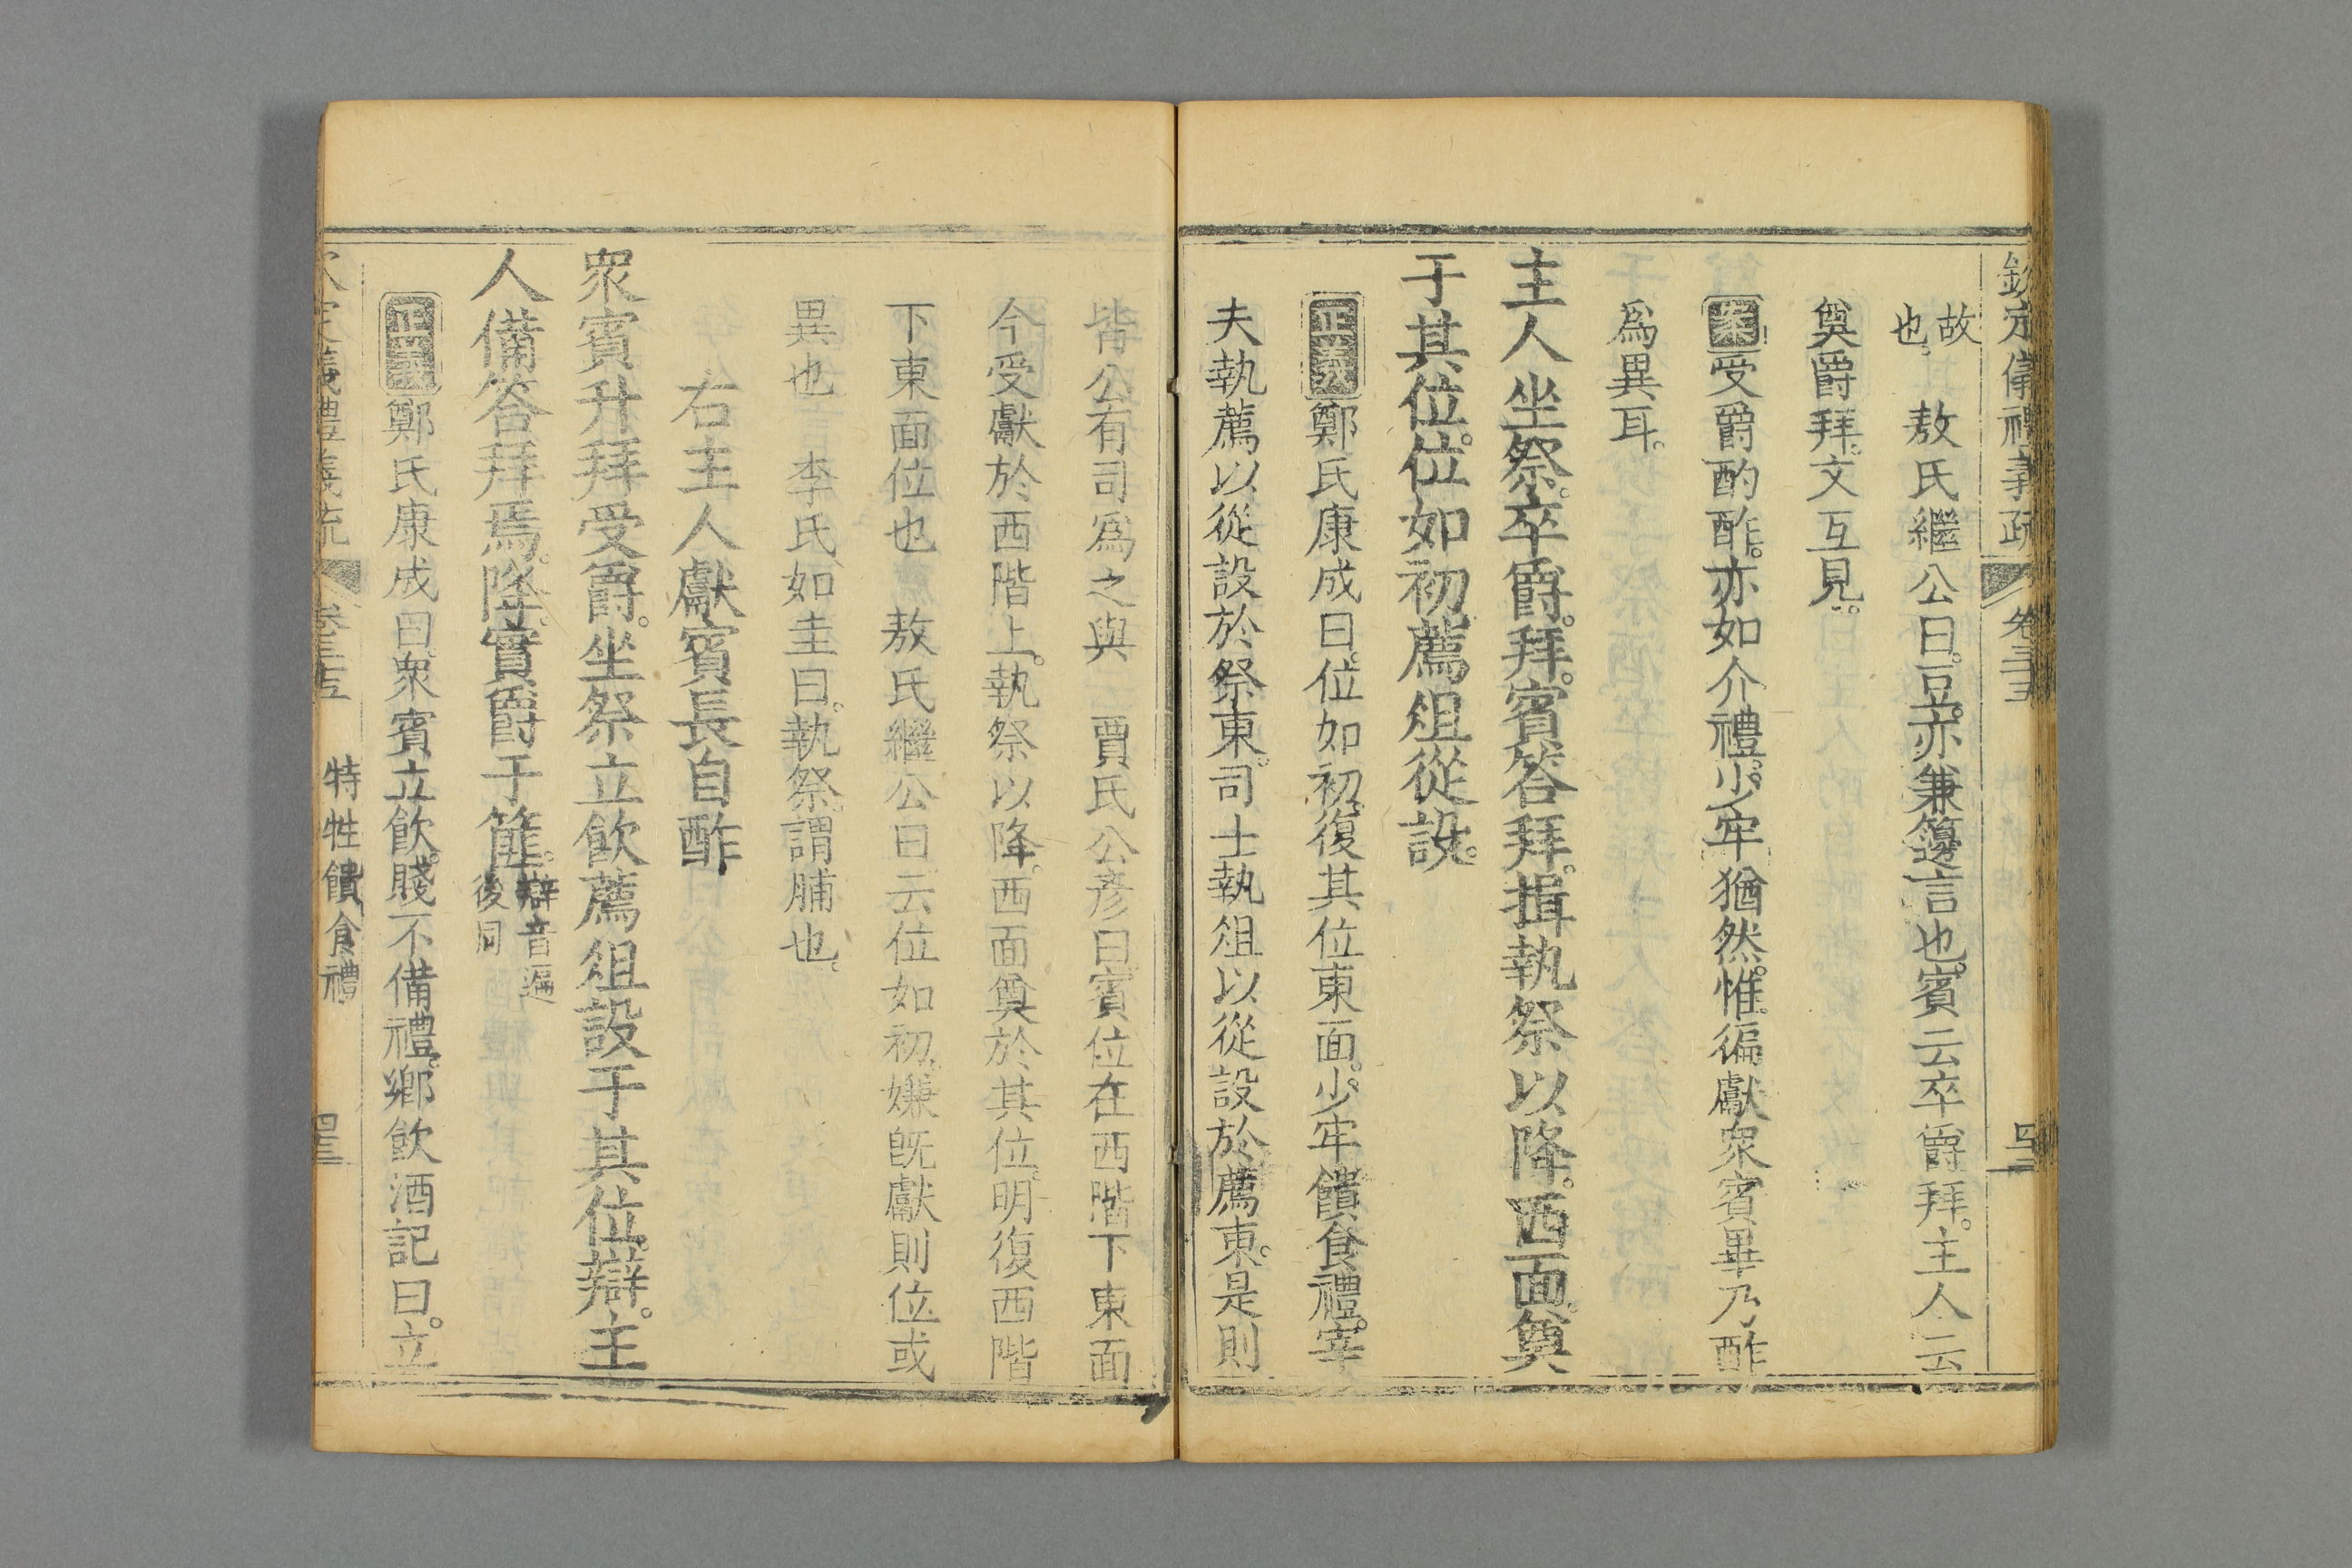 欽定儀禮義疏 卷三十五 四十二
故也。 敖氏繼公曰。豆。亦兼籩言也。賓云卒爵拜。主人云
奠爵拜。文互見。
案受爵酌酢。亦如介禮。少牢猶然。惟徧獻衆賓畢乃酢
爲異耳。
主人坐祭。卒爵。拜。賓答拜。揖執祭以降。西面奠
于其位。位如初。薦俎從設。
正義鄭氏康成曰。位如初。復其位東面。少牢饋食禮。宰
夫執薦以從設於祭東。司士執俎以從設於薦東。是則
皆公有司爲之與 賈氏公彥曰賓位在西階下東面
今受獻於西階上。執祭以降。西面奠於其位。明復西階
下東面位也 敖氏繼公曰云位如初。嫌旣獻則位或
異也 李氏如圭曰。執祭。謂脯也。
右主人獻賓長自酢
衆賓升拜受爵。坐祭立飲薦俎設于其位。辯。主
人備答拜焉。降。實爵于篚。辯音遍後同
正義鄭氏康成曰衆賓立飲。賤不備禮。鄉飲酒記曰。立
欽定儀禮義疏 卷三十五 特牲饋食禮 四十三